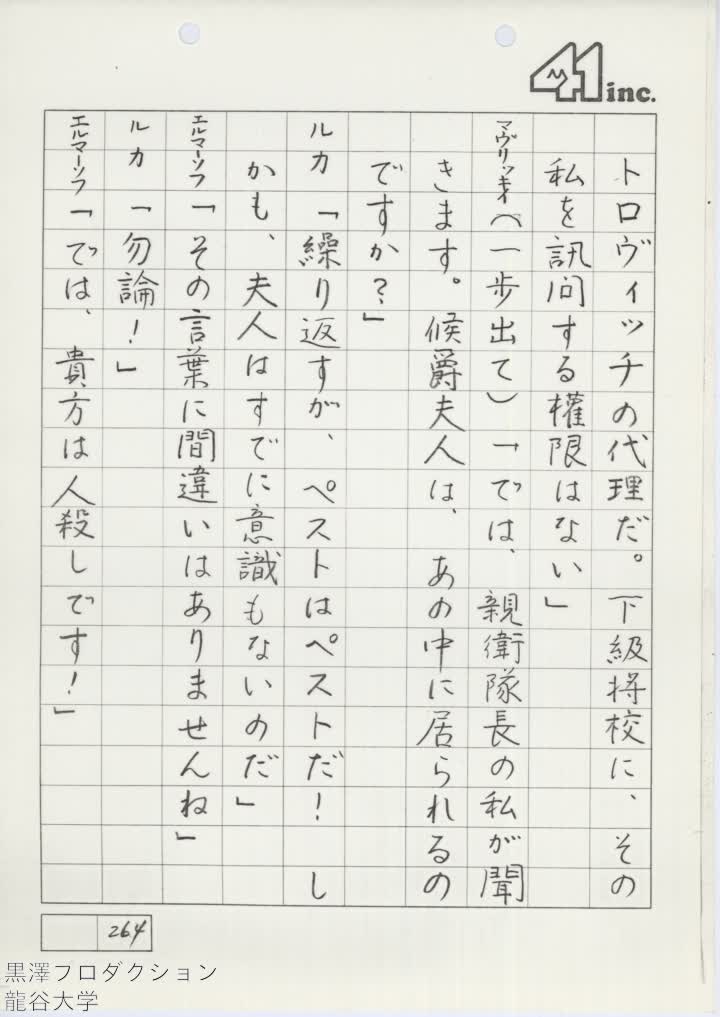 41 inc.
トロヴィッチの代理だ。下級将校に、その
私を訊問する権限はない」
マヴリッキイ(一歩出て)「では、親衛隊長の私が聞
きます。候爵夫人は、あの中に居られるの
ですか?」
ルカ「繰り返すが、ペストはペストだ! し
かも、夫人はすでに意識もないのだ」
エルマーソフ「その言葉に間違いはありませんね」
ルカ「勿論!」
エルマーソフ「では、貴方は人殺しです!」
264
黒澤プロダクション
龍谷大学